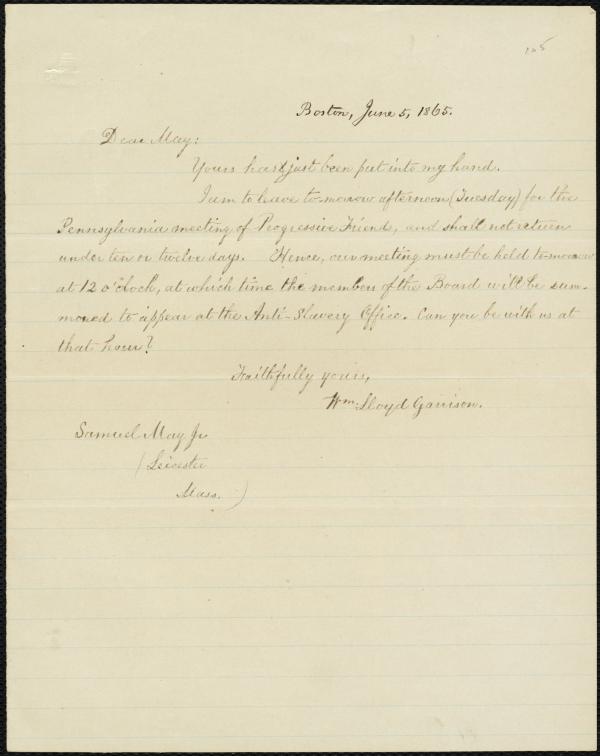 105
Boston, June 5, 1865.
Dear May:
Yours has just been put into my hand.
I am to leave to-morrow afternoon (Tuesday) for the
Pennsylvania meeting of Progressive Friends, and shall not return
under ten or twelve days. Hence, our meeting must be held to-morrow
at 12 o'clock, at which time the members of the Board will be sum-
moned to appear at the Anti-Slavery Office. Can you be with us at
that hour?
Faithfully yours,
Wm. Lloyd Garrison.
Samuel May Jr
(Leicester
Mass.)